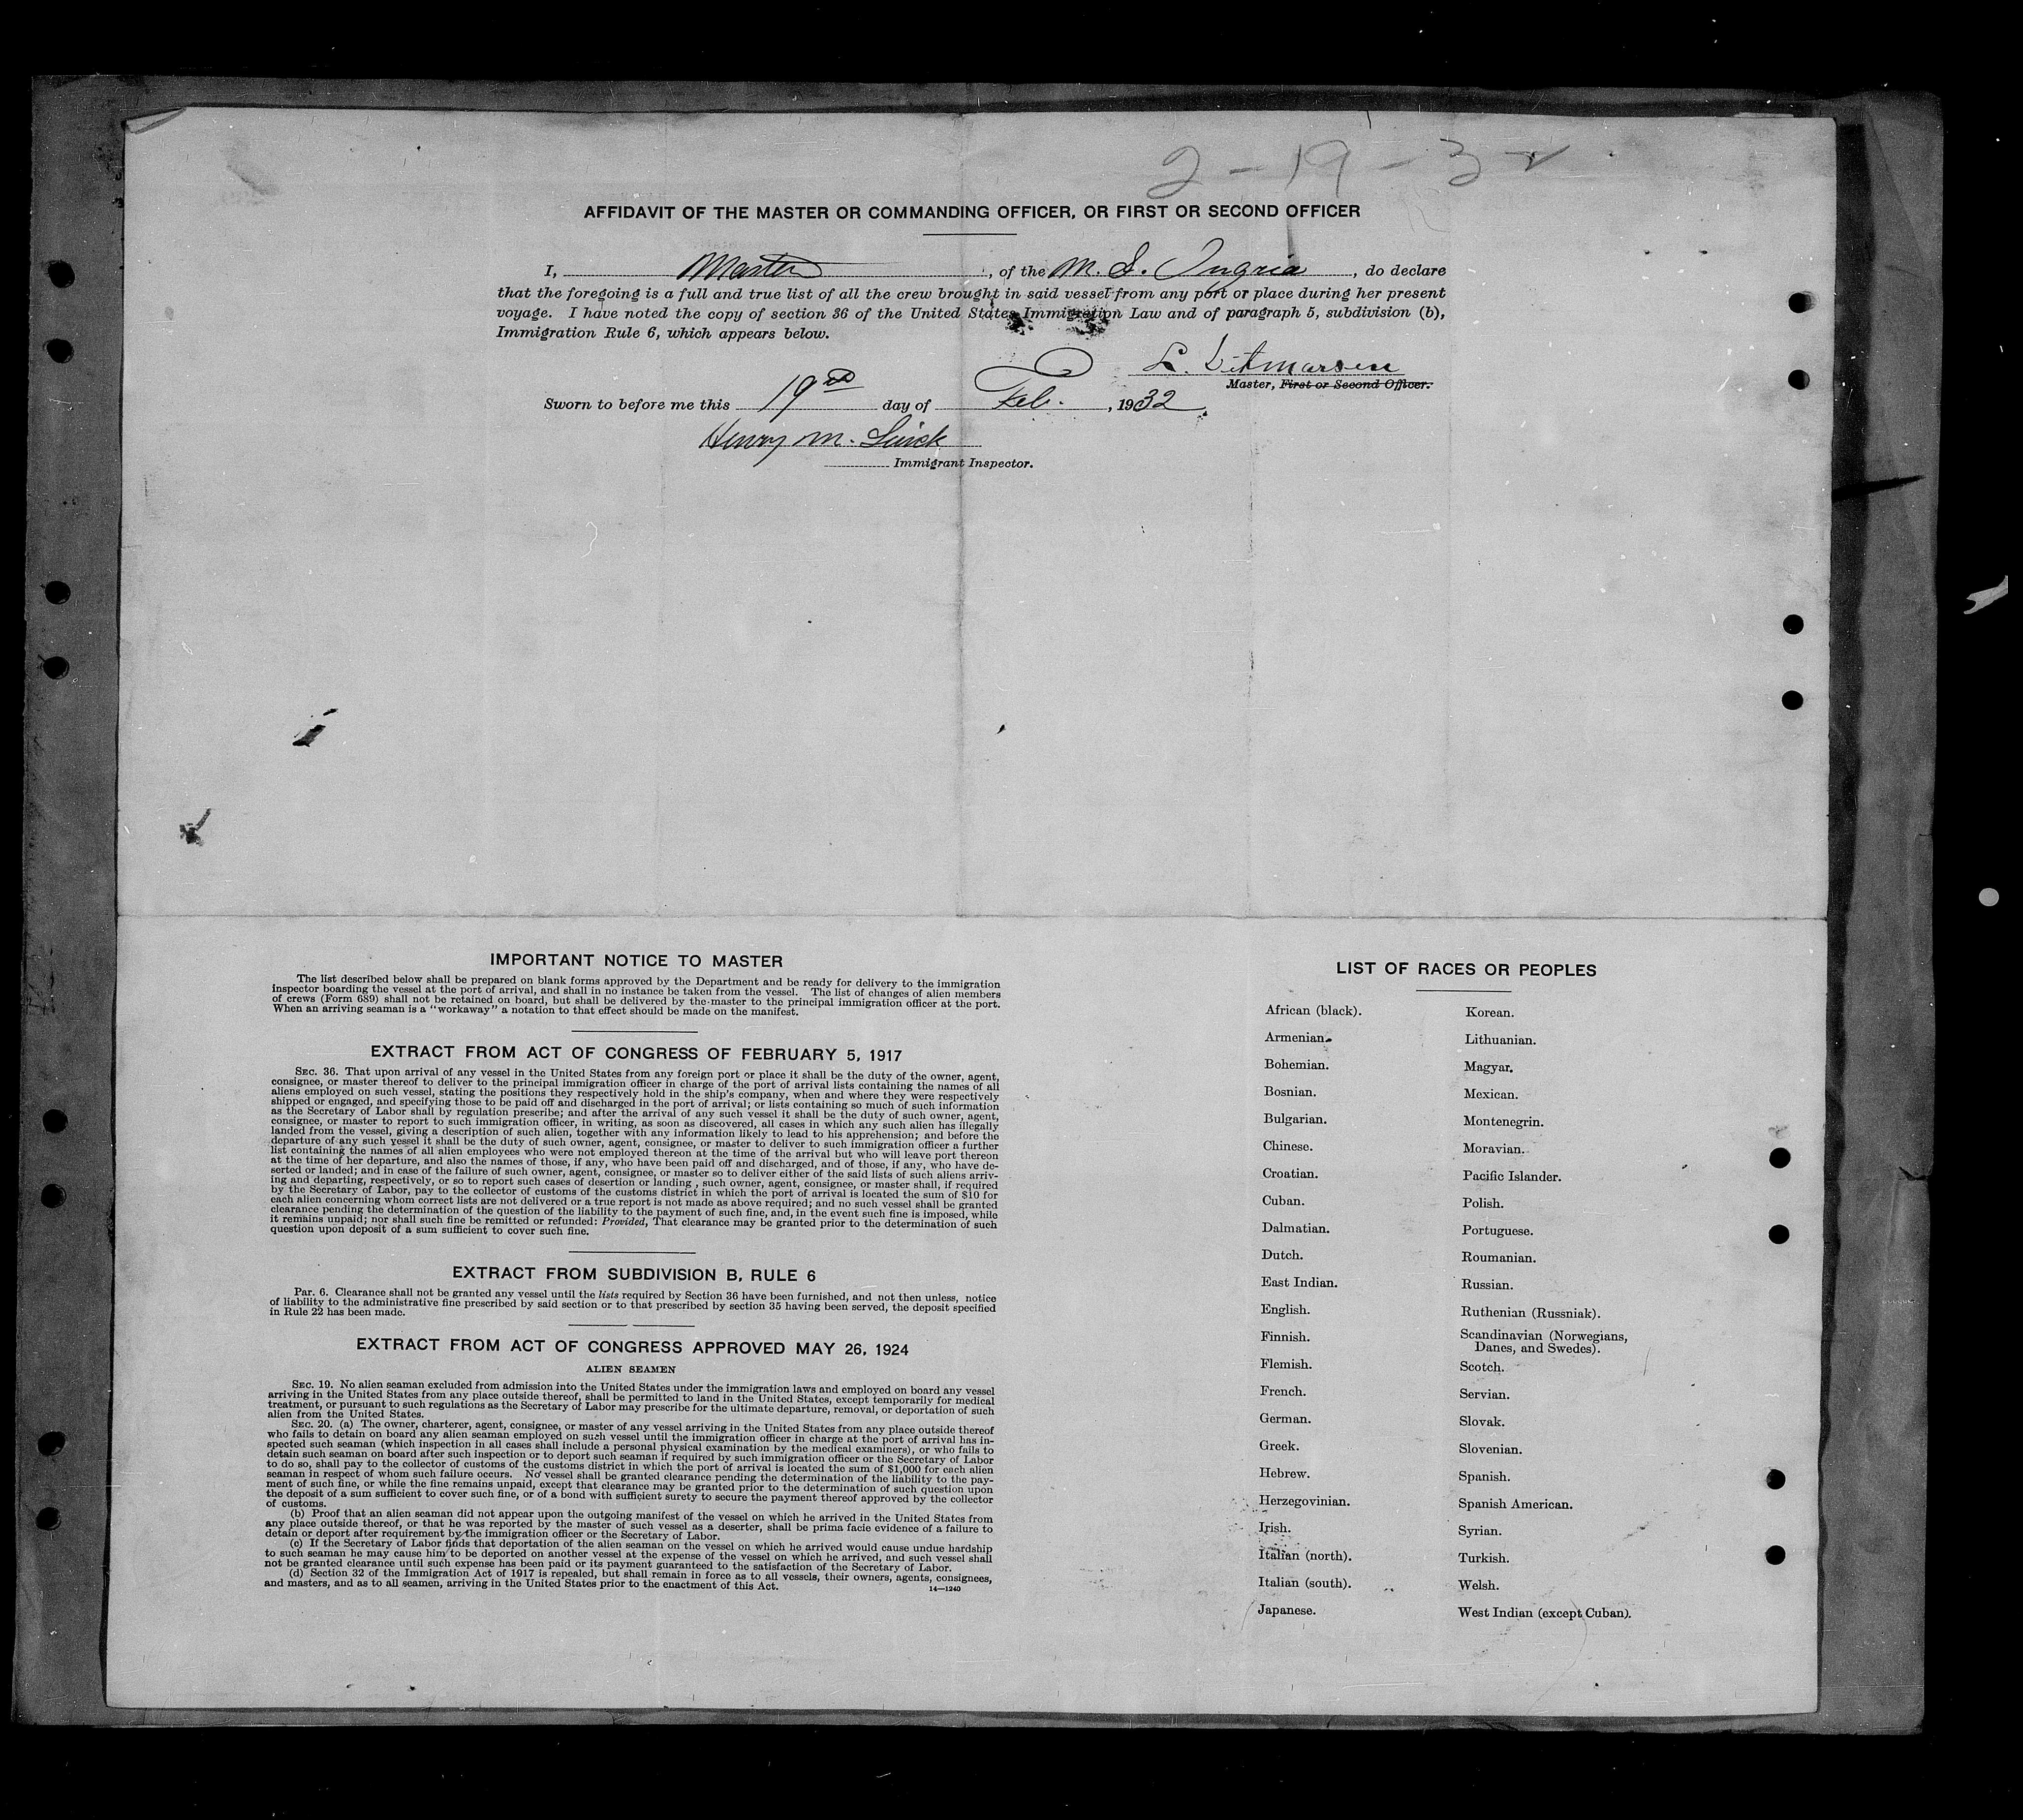 2-19-32
AFFIDAVIT OF THE MASTER OR COMMANDING OFFICER, OR FIRST OR SECOND OFFICER
I, Master, of the M. S. Ingria, do declare
that the foregoing is a full and true list of all the crew brought in said vessel from any port or place during her present
voyage. I have noted the copy of section 36 of the United States Immigration Law and of paragraph 5, subdivision (b),
Immigration Rule 6, which appears below.
L. Ditmarsen
Master, First or Second Officer.
Sworn to before me this 19th day of Feb., 1932.
Henry M.
Immigrant Inspector.
IMPORTANT NOTICE TO MASTER
The list described below shall be prepared on blank forms approved by the Department and be ready for delivery to the immigration
inspector boarding the vessel at the port of arrival, and shall in no instance be taken from the vessel. The list of changes of alien members
of crews (Form 689) shall not be retained on board, but shall be delivered by the master to the principal immigration officer at the port.
When an arriving seaman is a "workaway" a notation to that effect should be made on the manifest.
EXTRACT FROM ACT OF CONGRESS OF FEBRUARY 5, 1917
SEC. 36. That upon arrival of any vessel in the United States from any foreign port or place it shall be the duty of the owner, agent,
consignee, or master thereof to deliver to the principal immigration officer in charge of the port of arrival lists containing the names of all
aliens employed on such vessel, stating the positions they respectively hold in the ship's company, when and where they were respectively
shipped or engaged, and specifying those to be paid off and discharged in the port of arrival; or lists containing so much of such information
as the Secretary of Labor shall by regulation prescribe; and after the arrival of any such vessel it shall be the duty of such owner, agent,
consignee, or master to report to such immigration officer, in writing, as soon as discovered, all cases in which any such alien has illegally
landed from the vessel, giving a description of such alien, together with any information likely to lead to his apprehension; and before the
departure of any such vessel it shall be the duty of such owner, agent, consignee, or master to deliver to such immigration officer a further
list containing the names of all alien employees who were not employed thereon at the time of the arrival but who will leave port thereon
at the time of her departure, and also the names of those, if any, who have been paid off and discharged, and of those, if any, who have de-
serted or landed; and in case of the failure of such owner, agent, consignee, or master so to deliver either of the said lists of such aliens arriv-
ing and departing, respectively, or so to report such cases of desertion or landing , such owner, agent, consignee, or master shall, if required
by the Secretary of Labor, pay to the collector of customs of the customs district in which the port of arrival is located the sum of $10 for
each alien concerning whom correct lists are not delivered or a true report is not made as above required; and no such vessel shall be granted
clearance pending the determination of the question of the liability to the payment of such fine, and, in the event such fine is imposed, while
it remains unpaid; nor shall such fine be remitted or refunded: Provided, That clearance may be granted prior to the determination of such
question upon deposit of a sum sufficient to cover such fine.
EXTRACT FROM SUBDIVISION B, RULE 6
Par. 6. Clearance shall not be granted any vessel until the lists required by Section 36 have been furnished, and not then unless, notice
of liability to the administrative fine prescribed by said section or to that prescribed by section 35 having been served, the deposit specified
in Rule 22 has been made.
EXTRACT FROM ACT OF CONGRESS APPROVED MAY 26, 1924
ALIEN SEAMEN
SEC. 19. No alien seaman excluded from admission into the United States under the immigration laws and employed on board any vessel
arriving in the United States from any place outside thereof, shall be permitted to land in the United States, except temporarily for medical
treatment, or pursuant to such regulations as the Secretary of Labor may prescribe for the ultimate departure, removal, or deportation of such
alien from the United States.
SEC. 20. (a) The owner, charterer, agent, consignee, or master of any vessel arriving in the United States from any place outside thereof
who fails to detain on board any alien seaman employed on such vessel until the immigration officer in charge at the port of arrival has in-
spected such seaman (which inspection in all cases shall include a personal physical examination by the medical examiners), or who fails to
detain such seaman on board after such inspection or to deport such seaman if required by such immigration officer or the Secretary of Labor
to do so, shall pay to the collector of customs of the customs district in which the port of arrival is located the sum of $1,000 for each alien
seaman in respect of whom such failure occurs. No vessel shall be granted clearance pending the determination of the liability to the pay-
ment of such fine, or while the fine remains unpaid, except that clearance may be granted prior to the determination of such question upon
the deposit of a sum sufficient to cover such fine, or of a bond with sufficient surety to secure the payment thereof approved by the collector
of customs.
(b) Proof that an alien seaman did not appear upon the outgoing manifest of the vessel on which he arrived in the United States from
any place outside thereof, or that he was reported by the master of such vessel as a deserter, shall be prima facie evidence of a failure to
detain or deport after requirement by the immigration officer or the Secretary of Labor.
(c) If the Secretary of Labor finds that deportation of the alien seaman on the vessel on which he arrived would cause undue hardship
to such seaman he may cause him to be deported on another vessel at the expense of the vessel on which he arrived, and such vessel shall
not be granted clearance until such expense has been paid or its payment guaranteed to the satisfaction of the Secretary of Labor.
(d) Section 32 of the Immigration Act of 1917 is repealed, but shall remain in force as to all vessels, their owners, agents, consignees,
and masters, and as to all seamen, arriving in the United States prior to the enactment of this Act.
14—1240
LIST OF RACES OR PEOPLES
African (black).
Armenian.
Bohemian.
Bosnian.
Bulgarian.
Chinese.
Croatian.
Cuban.
Dalmatian.
Dutch.
East Indian.
English.
Finnish.
Flemish.
French.
German.
Greek.
Hebrew.
Herzegovinian.
Irish.
Italian (north).
Italian (south).
Japanese.
Korean.
Lithuanian.
Magyar.
Mexican.
Montenegrin.
Moravian.
Pacific Islander.
Polish.
Portuguese.
Roumanian.
Russian.
Ruthenian (Russniak).
Scandinavian (Norwegians,
Danes, and Swedes).
Scotch.
Servian.
Slovak.
Slovenian.
Spanish.
Spanish American.
Syrian.
Turkish.
Welsh.
West Indian (except Cuban).